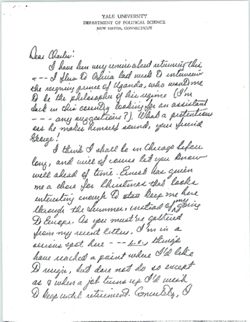 YALE UNIVERSITY
DEPARTMENT OF POLITICAL SCIENCE
NEW HAVEN, CONNECTICUT
Dear Charlie:
I have been very remiss about returning this
--- I flew to Africa last week to interview
the prime of Uganda, who wanted me
to be the philosopher of his regime (I'm
back in this country looking for an assistant
--- any suggestions?). What a pretentious
ass he makes himself sound, you
George!
I think I shall be in Chicago before
long, and will of course let you know
well ahead of time. has given
me a chore for Christmas that looks
interesting enough to keep me here
through the summer, instead of going
to Europe. As you must've gathered
from my recent letters, I'm in a
serious spot here --- things
have reached a point where I'd like
to resign, but dare not do so except
as & when a job turns up I'd want
to keep until retirement. Conversely, I